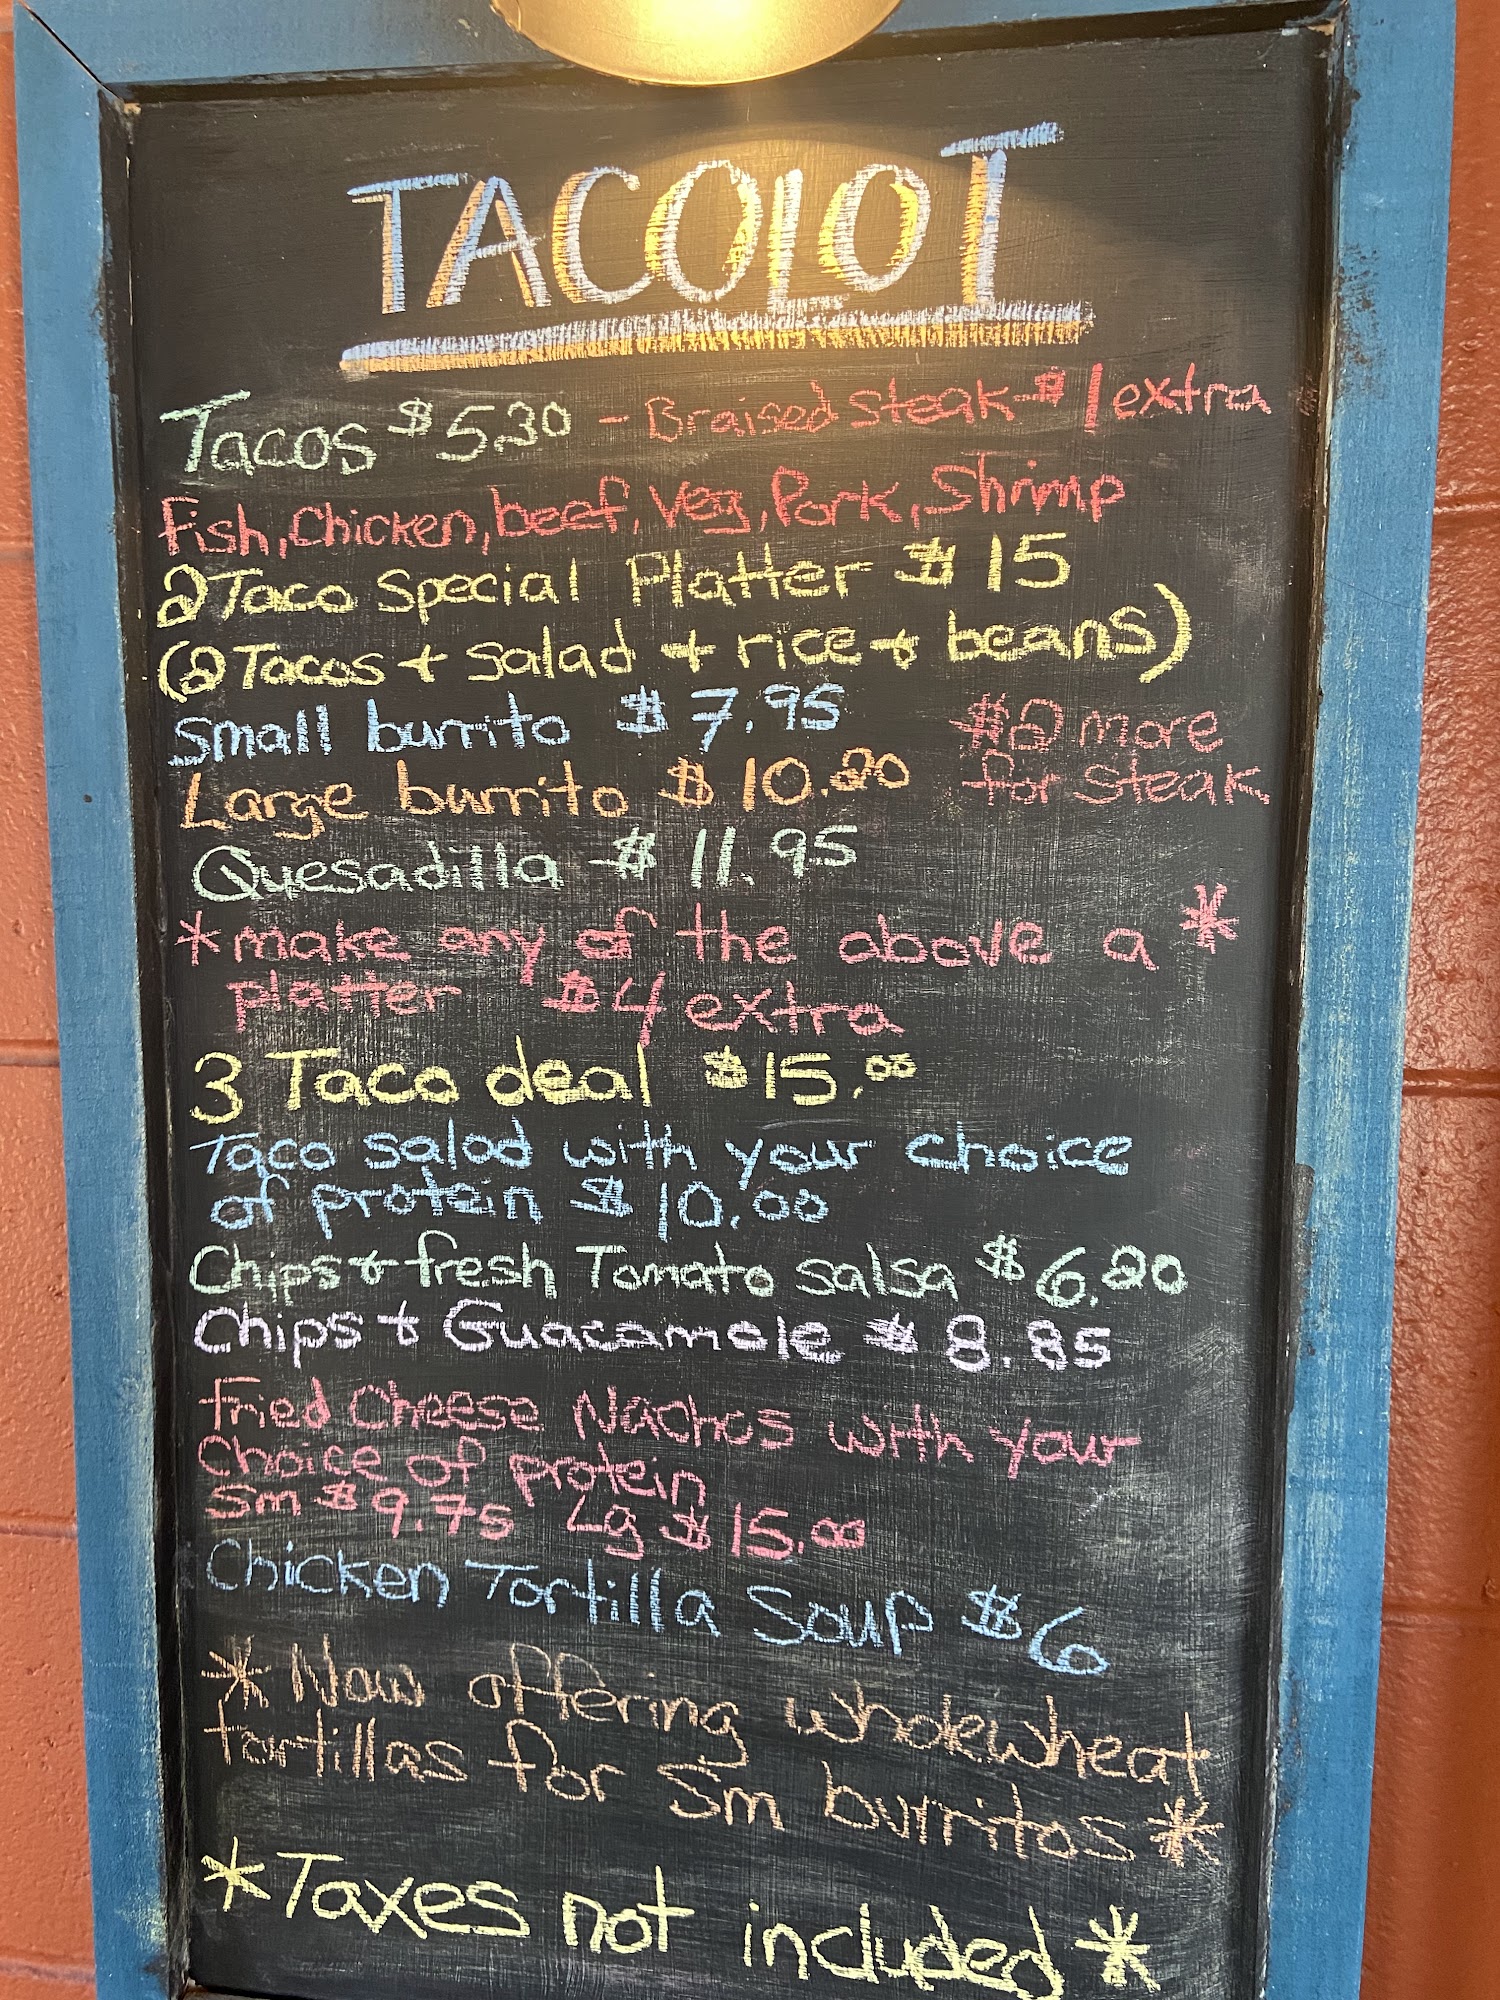 TACOLOT
Tacos $5.30 - Braised steak $1 extra
Fish, Chicken, beef, Veg, Pork, Shrimp
2 Taco Special Platter $15
(2 Tacos + salad + rice + beans)
Small burrito $7.95 $2 more
Large burrito $10.20 for steak
Quesadilla $11.95
*make any of the above a *
platter $4 extra
3 Taco deal $15.00
Taco salad with your choice
of protein $10.00
Chips & fresh Tomato salsa $6.20
Chips & Guacamole $8.85
Fried Cheese Nachos with your
Choice of protein
Sm $9.75 Lg $15.00
Chicken Tortilla Soup $6
*Now offering wholewheat
tortillas for Sm burritos*
*Taxes not included*